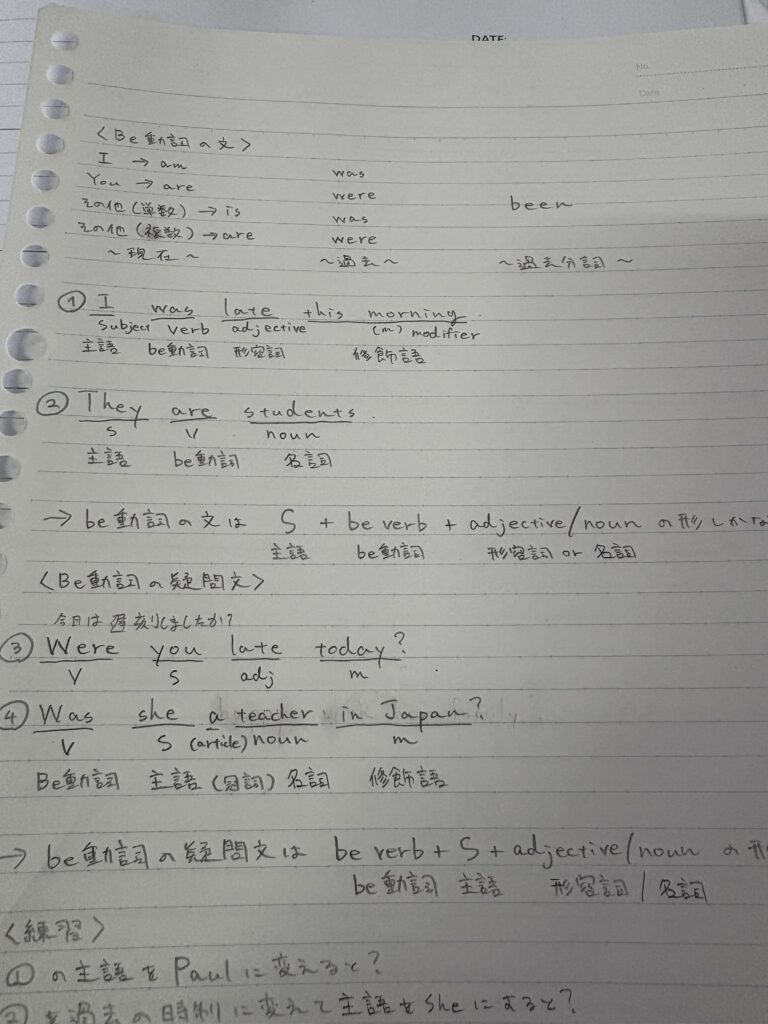 DATE:
No.
Date
〈Be動詞の文〉
I → am was
You → are were been
その他(単数) → is was
その他(複数) → are were
～現在～ ～過去～ ～過去分詞～
① I was late this morning.
Subject verb adjective (m) modifier
主語 be動詞 形容詞 修飾語
② They are students.
S V noun
主語 be動詞 名詞
→ be動詞の文は S + be verb + adjective/noun の形しかな
主語 be動詞 形容詞 or 名詞
〈Be動詞の疑問文〉
今日は遅刻しましたか?
③ Were you late today?
V S adj m
④ Was she a teacher in Japan?
V S (article) noun m
Be動詞 主語 (冠詞) 名詞 修飾語
→ be動詞の疑問文は be verb + S + adjective/noun の形
be動詞 主語 形容詞 / 名詞
〈練習〉
① の主語を Paul に変えると?
② を過去の時制に変えて主語を She にすると?